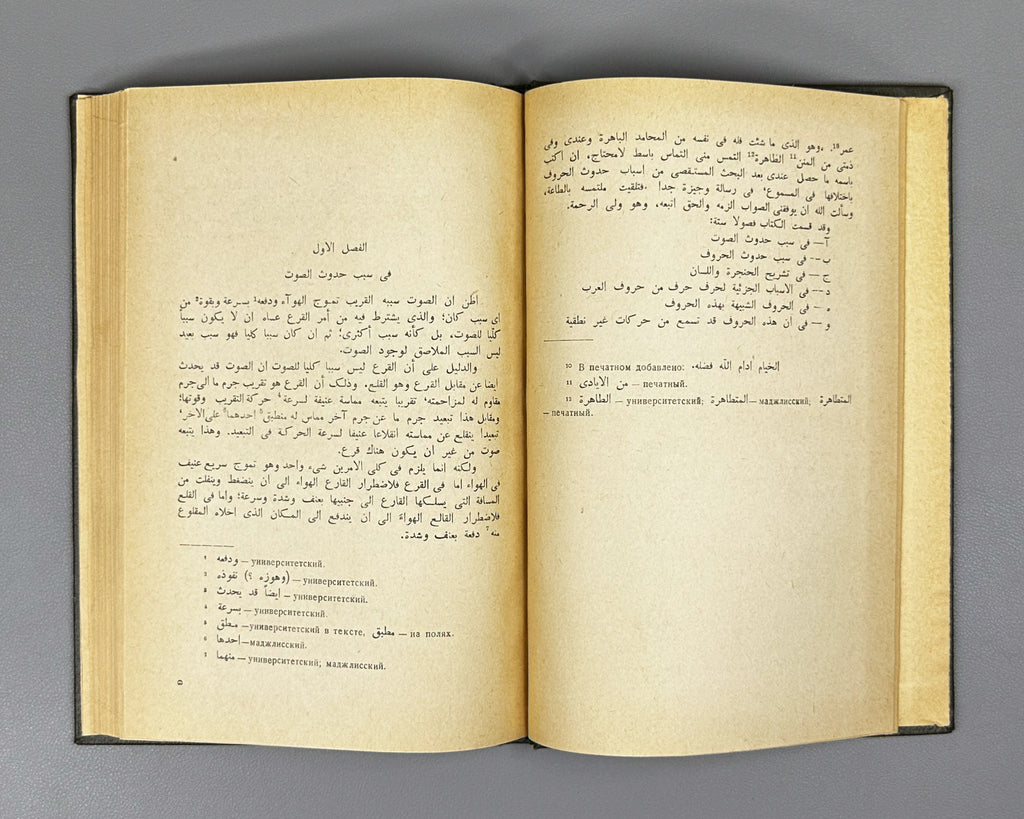 عمر¹⁰. «وهو الذى ما شئت قله فى نفسه من المحامد الباهرة وعندى وفى
ذمتى من المنن¹¹ الظاهرة¹² التمس منى التماس باسط لامحتاج، ان اكتب
باسمه ما حصل عندى بعد البحث المستقصى من اسباب حدوث الحروف
باختلافها فى المسموع، فى رسالة وجيزة جدا. فتلقيت ملتمسه بالطاعة،
وسألت الله ان يوفقنى الصواب الزمه والحق اتبعه، وهو ولى الرحمة.
وقد قسمت الكتاب فصولا ستة:
آ — فى سبب حدوث الصوت
ب — فى سبب حدوث الحروف
ج — فى تشريح الحنجرة واللسان
د — فى الاسباب الجزئية لحرف حرف من حروف العرب
ه — فى الحروف الشبيهة بهذه الحروف
و — فى ان هذه الحروف قد تسمع من حركات غير نطقية
¹⁰ В печатном добавлено: الخيام أدام الله فضله.
¹¹ من الأيادى — печатный.
¹² الطاهرة — университетский; المتظاهرة — маджлисский; المتظاهرة
— печатный.
الفصل الاول
فى سبب حدوث الصوت
اظن ان الصوت سببه القريب تموج الهوآء ودفعه¹ بسرعة وبقوة² من
اى سبب كان؛ والذى يشترط فيه من أمر القرع عساه ان لا يكون سببأ
كلّيا للصوت. بل كأنه سبب أكثرى؛ ثم ان كان سببا كليا فهو سبب بعيد
ليس السبب الملاصق لوجود الصوت.
والدليل على أن القرع ليس سببا كليا للصوت ان الصوت قد يحدث
ايضا عن مقابل القرع وهو القلع. وذلك أن القرع هو تقريب جرم ما الى جرم
مقاوم له لمزاحمته، تقريبا يتبعه مماسة عنيفة لسرعة⁴ حركة التقريب وقوتها؛
ومقابل هذا تبعيد جرم ما عن جرم آخر مماس له منطبق⁵ احدهما⁶ على الآخر،
تبعيدا ينقلع عن مماسته انقلاعا عنيفا لسرعة الحركة فى التبعيد. وهذا يتبعه
صوت من غير ان يكون هناك قرع.
ولكنه انما يلزم فى كلى الامرين شىء واحد وهو تموج سريع عنيف
فى الهواء اما فى القرع فلاضطرار القارع الهواء الى ان ينضغط وينفلت من
المسافة التى يسلكها القارع الى جنبيها بعنف وشدة وسرعة؛ واما فى القلع
فلاضطرار القالع الهواء الى ان يندفع الى المكان الذى اخلاه المقلوع
منه⁷ دفعة بعنف وشدة.
¹ ودفعه — университетский.
² نفوذه (وهوزه ؟) — университетский.
³ ايضاً قد يحدث — университетский.
⁴ بسرعة — университетский.
⁵ مطق — университетский в тексте, مطبق — на полях.
⁶ احدها — маджлисский.
⁷ منهما — университетский; маджлисский.